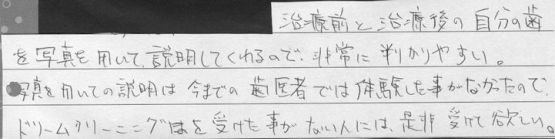 治療前と治療後の自分の歯
を写真を用いて、説明してくれるので、非常に判かりやすい。
写真を用いての説明は今までの歯医者では体験した事がなかったので、
ドリームクリーニングはを受けた事がない人には、是非受けて欲しい。